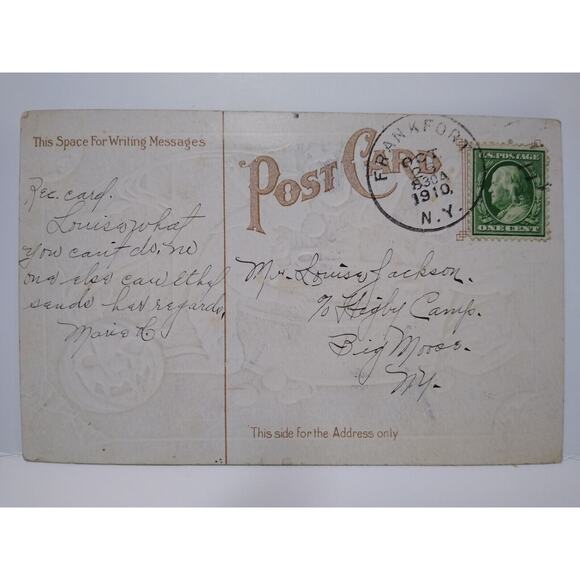 This Space For Writing Messages
Rec. card.
Louise what
you can't do, no
one else can Ethel
sends her regards,
Marie H.
POST CARD
FRANKFORT
OCT
830A
1910.
N.Y.
U.S. POSTAGE
ONE CENT
Mr. Louise Jackson.
℅ Higby Camp.
Big Moose.
NY.
This side for the Address only